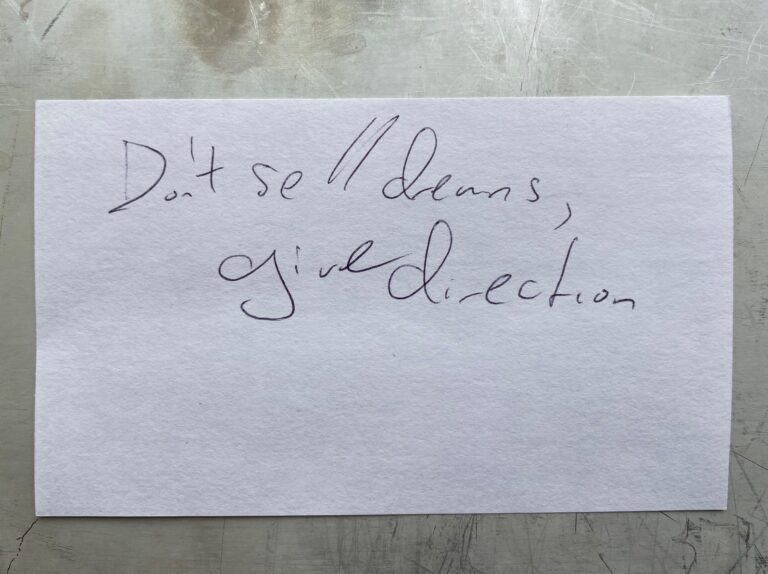 Don't sell dreams,
give direction